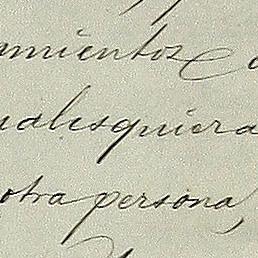 amientos
ualesquiera
otra persona,